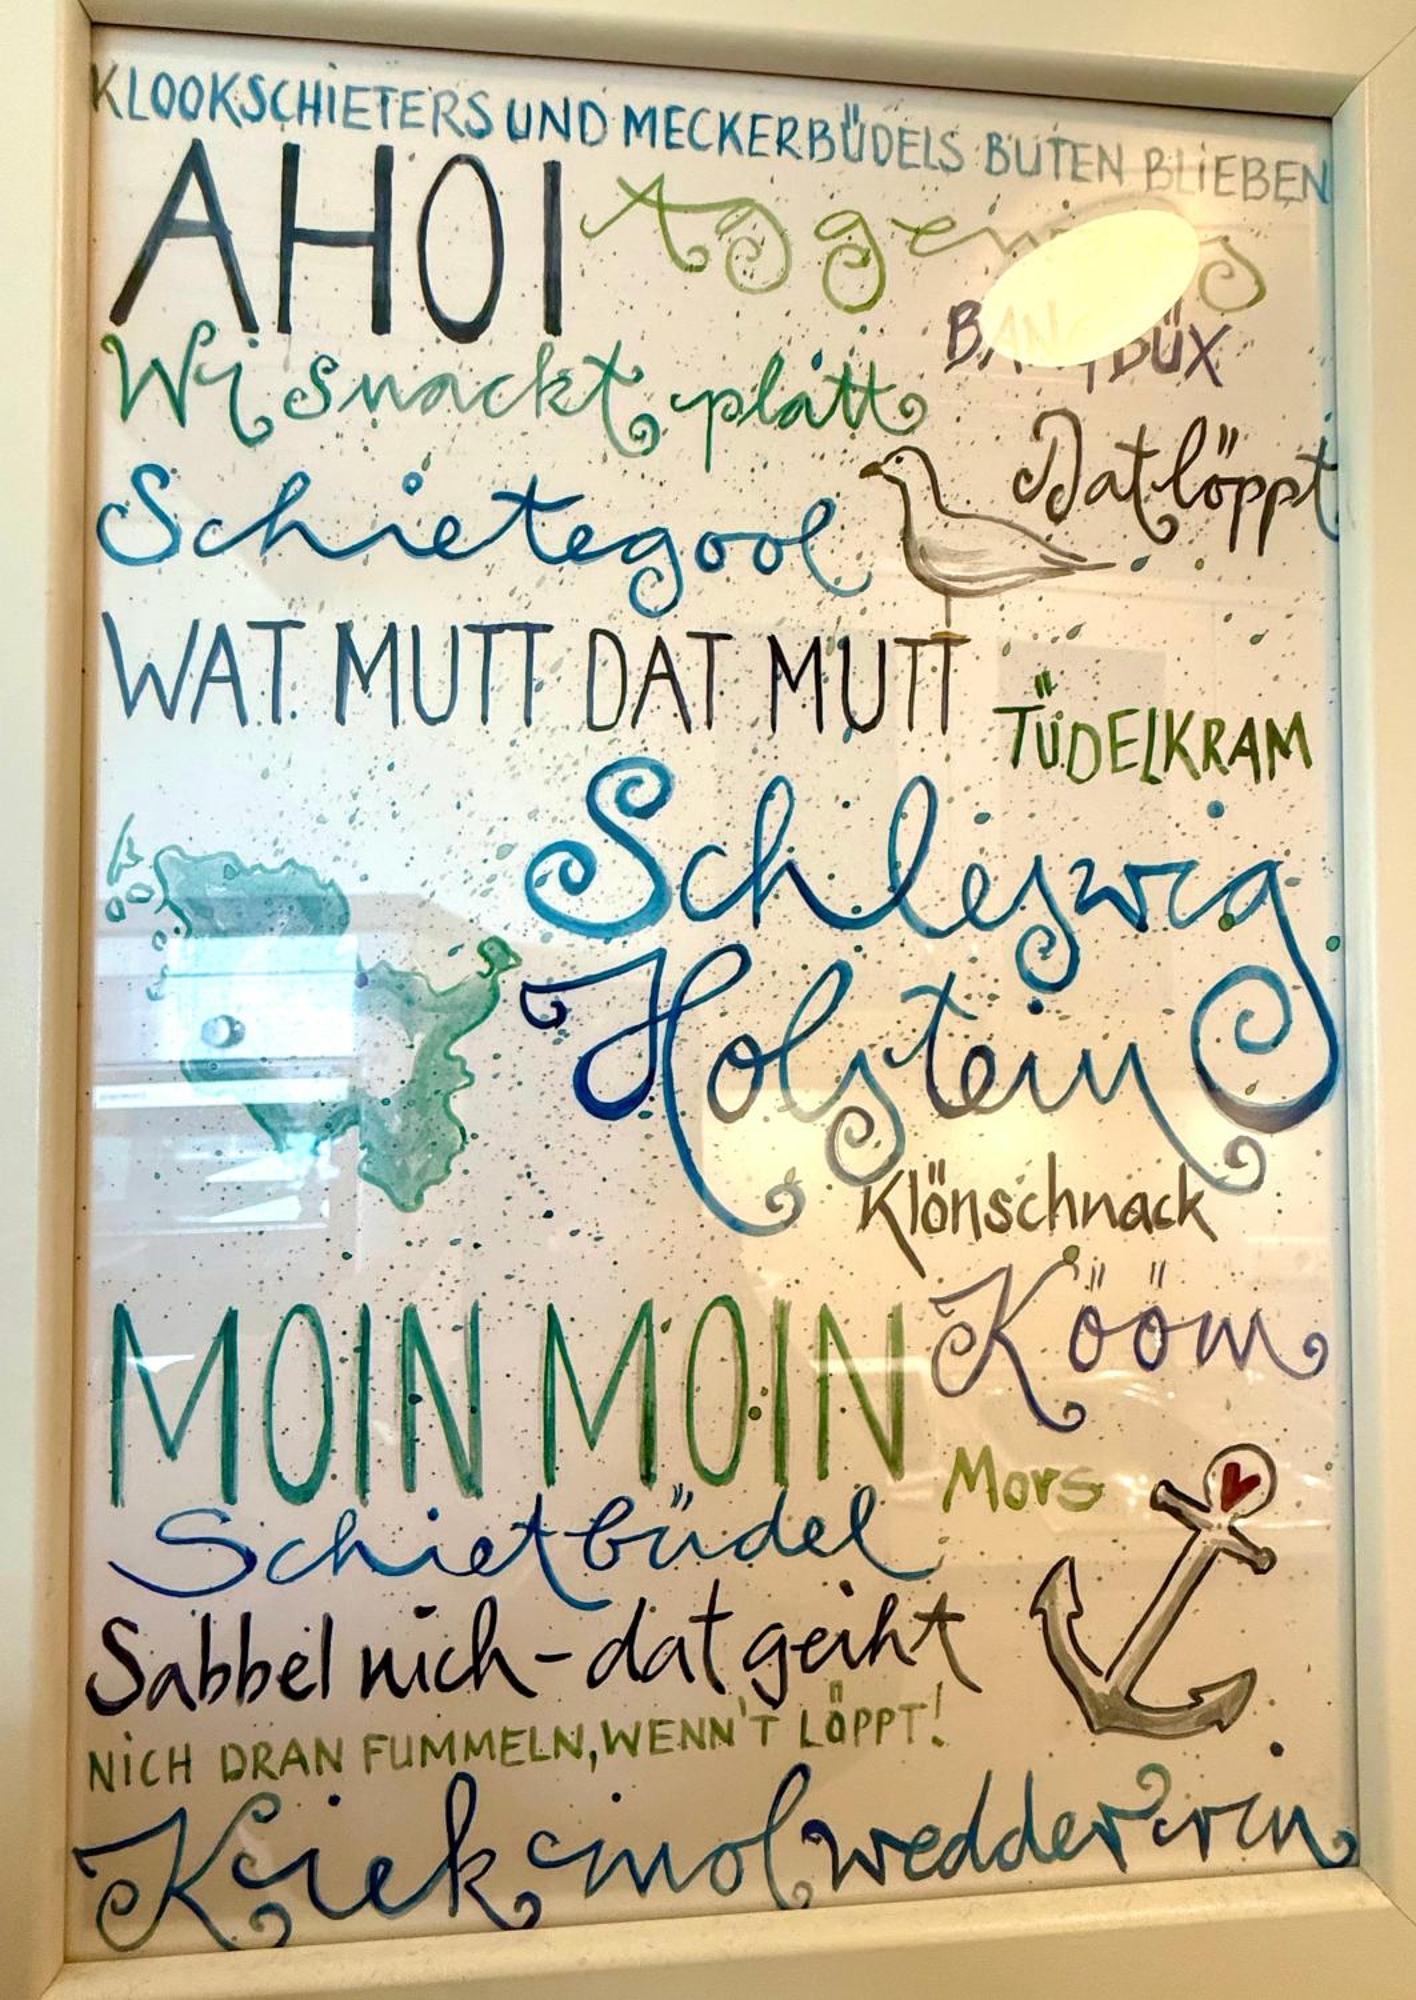 KLOOKSCHIETERS UND MECKERBÜDELS BUTEN BLIEBEN
AHOI
BANGBÜX
Wi snackt platt
Dat löppt
Schietegool
WAT MUTT DAT MUTT
TÜDELKRAM
Schleswig
Holstein
Klönschnack
Kööm
MOIN MOIN
Mors
Schietbüdel
Sabbel nich - dat geiht
NICH DRAN FUMMELN, WENN'T LÖPPT!
Kiek mol wedder in